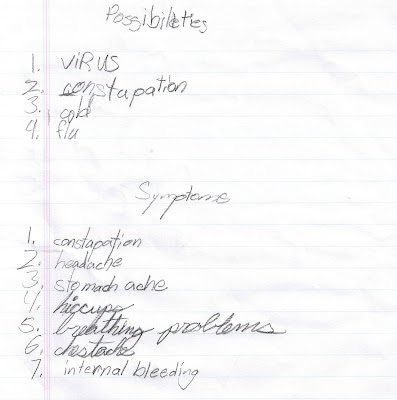 Possibileties
1. VIRUS
2. constapation
3. cold
4. flu
Symptoms
1. constapation
2. headache
3. stomach ache
4. hiccups
5. breathing problems
6. chestache
7. internal bleeding